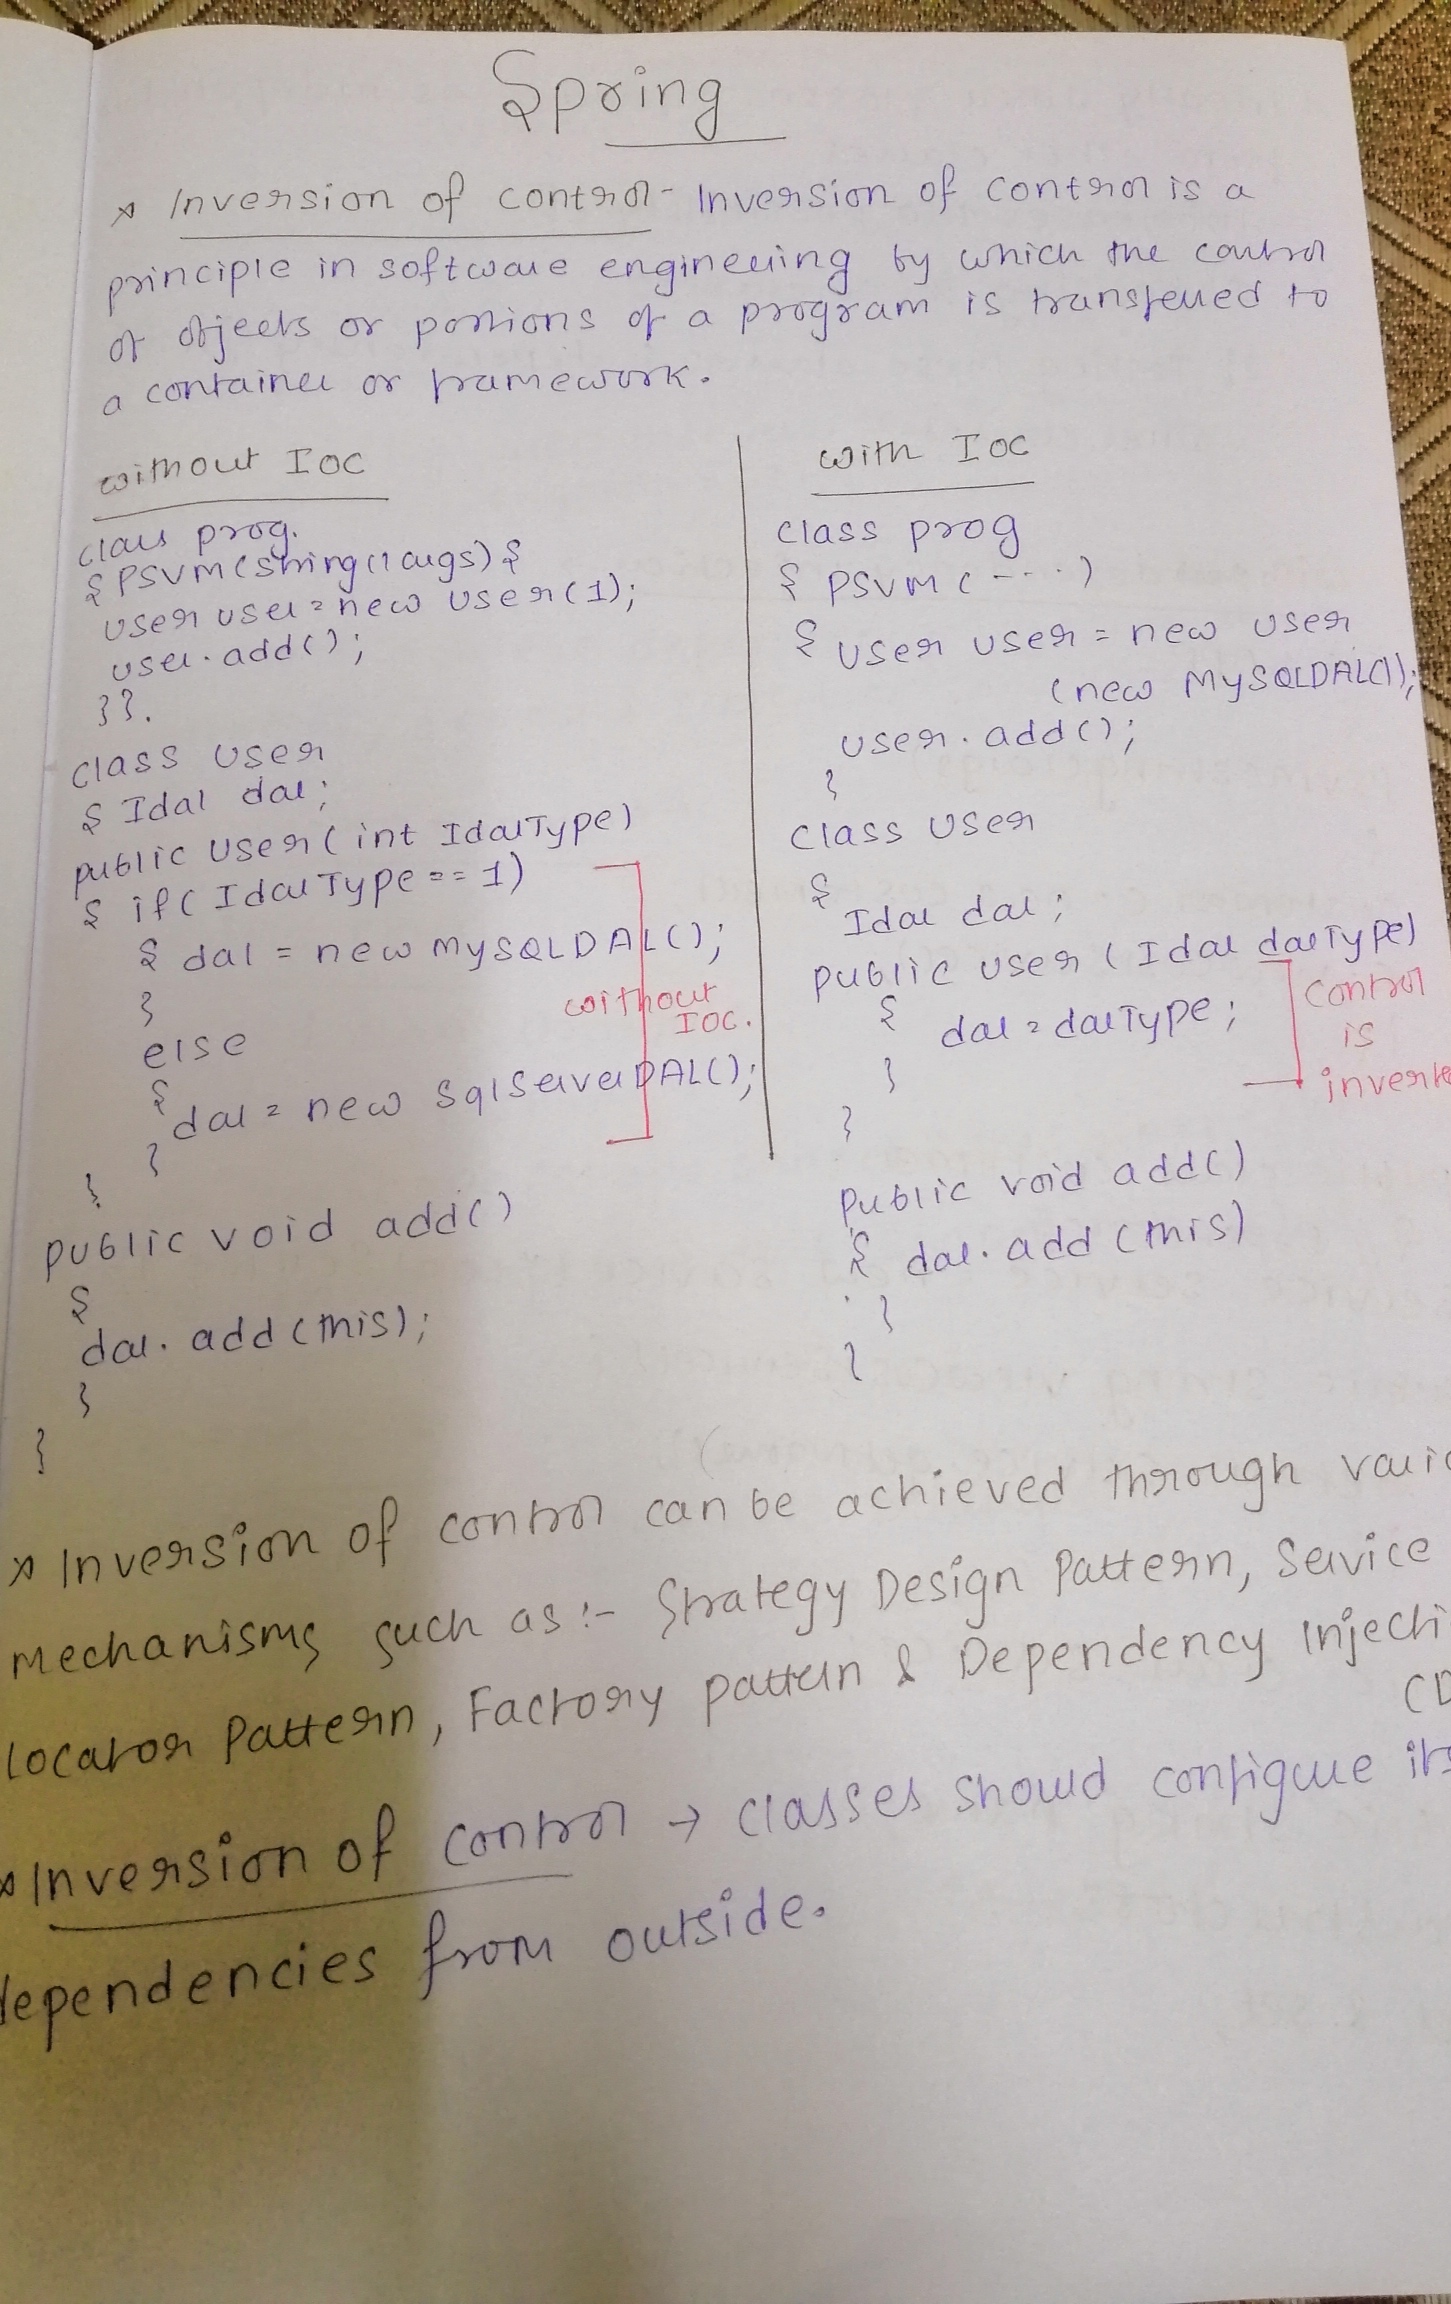 Spring
* Inversion of control - Inversion of control is a
principle in software engineering by which the control
of objects or portions of a program is transferred to
a container or framework.
without IOC
class prog.
{ PSVM (String[] args) {
User user = new User(1);
user.add();
}}.
class User
{ Idal dal;
public User (int IdalType)
{ if ( IdalType == 1)
{ dal = new MySQLDAL();
}
without
IOC.
else
{
dal = new SqlServerDAL();
}
}
public void add()
{
dal. add (this);
}
}
with IOC
class prog
{ PSVM (----)
{ User user = new User
(new MySQLDAL());
user.add();
}
class User
{
Idal dal;
public User ( Idal dalType)
{
dal = dalType;
}
control
is
}
public void add()
{ dal. add (this)
}
}
* Inversion of control can be achieved through
mechanisms such as :- Strategy Design Pattern, Service
locator Pattern, Factory pattern & Dependency
* Inversion of control → classes should configure
dependencies from outside.